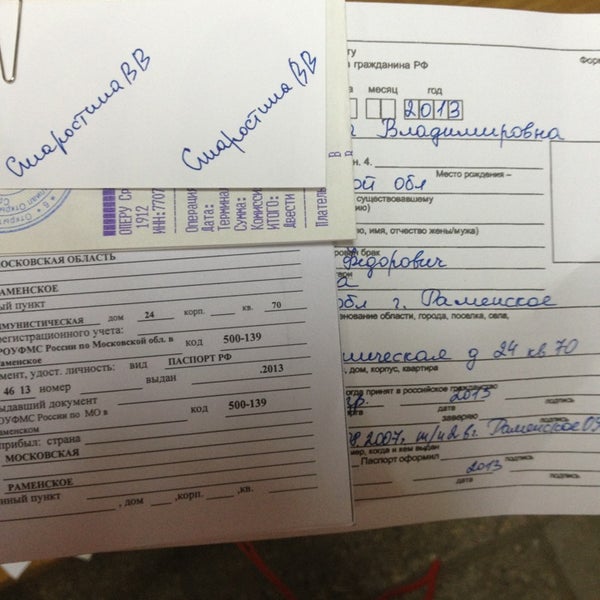 Старостина ВВ
Старостина ВВ
ОПЕРУ Ср
1912
ИНН:7707
Операция
Дата:
Термина
Сумма:
Комисси
ИТОГО:
Двести
Плател
МОСКОВСКАЯ ОБЛАСТЬ
РАМЕНСКОЕ
ный пункт
ММУНИСТИЧЕСКАЯ дом 24 корп. кв. 70
регистрационного учета:
РОУФМС России по Московской обл. в код 500-139
Раменское
мент, удост. личность: вид ПАСПОРТ РФ
46 13 номер выдан .2013
выдавший документ
ОУФМС России по МО в код 500-139
аменском
прибыл: страна
МОСКОВСКАЯ
РАМЕНСКОЕ
нный пункт , дом ,корп. ,кв.
ту
а гражданина РФ
Фор
месяц год
2013
Владимировна
н. 4.
Место рождения –
ой обл
существовавшему
ию)
ю, имя, отчество жены/мужа)
брак
Федорович
а
обл г. Раменское
енование области, города, поселка, села,
ическая д 24 кв 70
, дом, корпус, квартира
когда принят в российское гражданство
2013
дата подпись
заверяю
2007г. т/п 2 в г. Раменское
мер, когда и кем выдан подпись
Паспорт оформил
2013
дата подпись